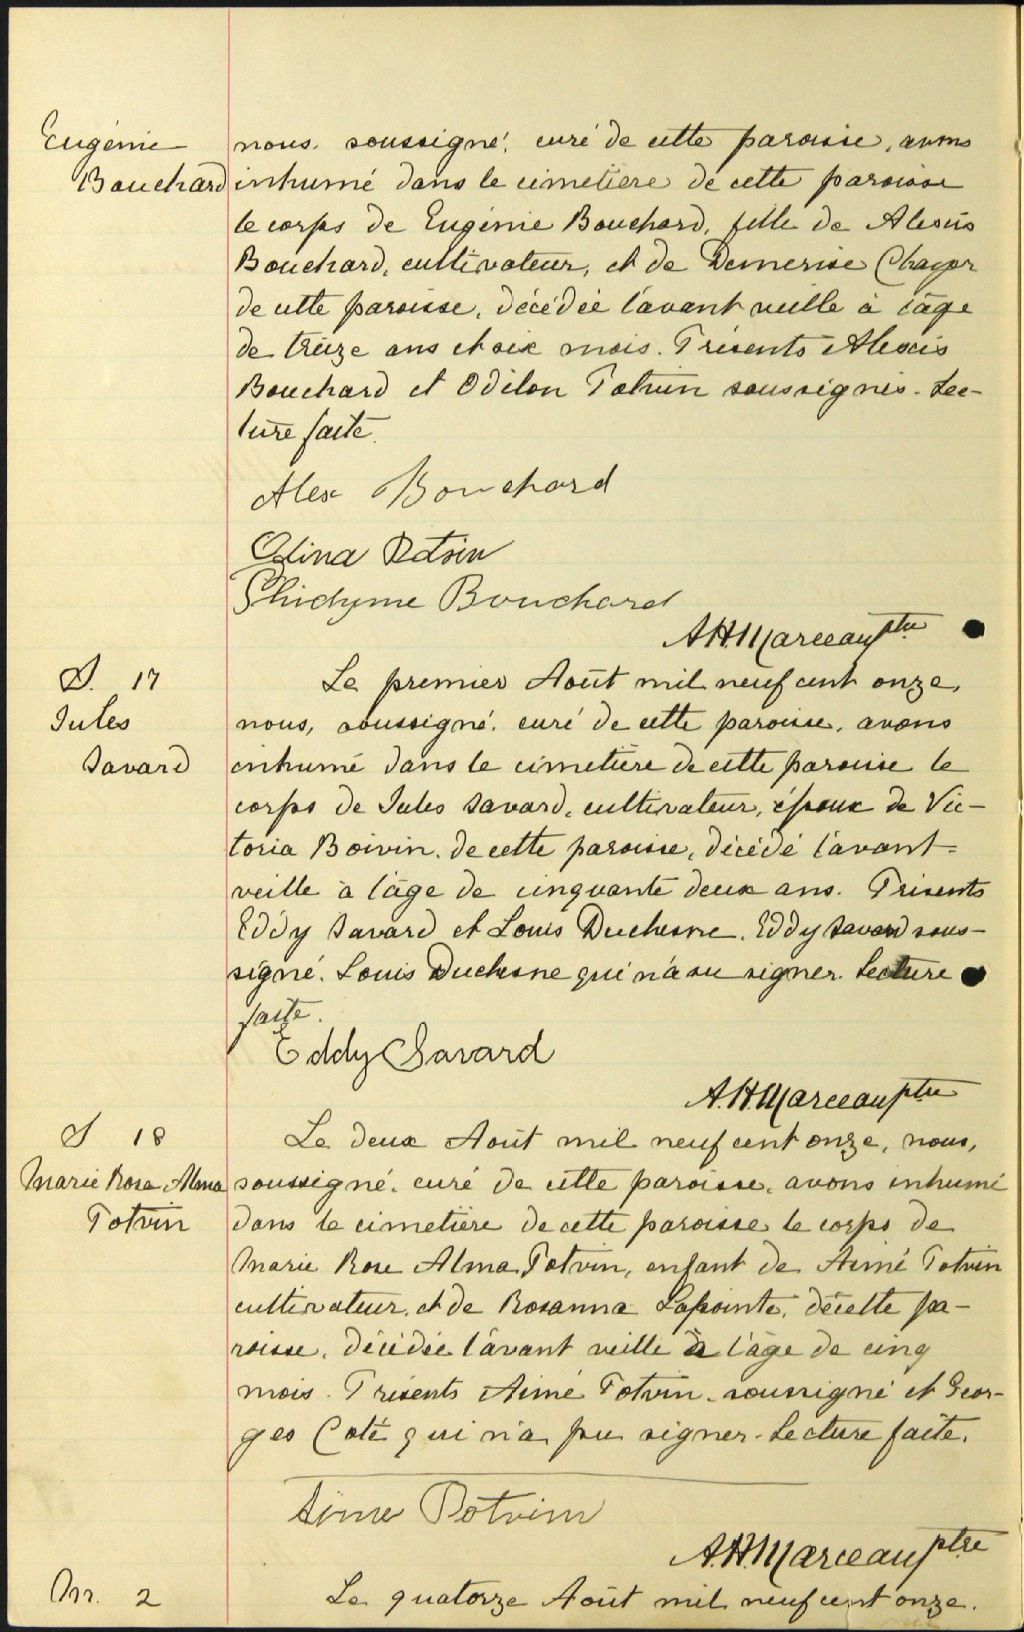 Eugénie
Bouchard
nous, soussigné, curé de cette paroisse, avons
inhumé dans le cimetière de cette paroisse
le corps de Eugénie Bouchard, fille de Alexis
Bouchard, cultivateur, et de Demerise
de cette paroisse, décédée l'avant veille à l'âge
de treize ans et six mois. Présents Alexis
Bouchard et Odilon Potvin soussignés. Lec-
ture faite.
Alex Bouchard
Potvin
Bouchard
A.H. Marceau ptre
S. 17
Jules
Savard
Le premier Août mil neuf cent onze,
nous, soussigné, curé de cette paroisse, avons
inhumé dans le cimetière de cette paroisse le
corps de Jules Savard, cultivateur, époux de Vic-
toria Boivin, de cette paroisse, décédé l'avant-
veille à l'âge de cinquante deux ans. Présents
Eddy Savard et Louis Duchesne. Eddy Savard sous-
signé. Louis Duchesne qui n'a su signer. Lecture
faite.
Eddy Savard
A.H. Marceau ptre
S 18
Marie Rose Alma
Potvin
Le deux Août mil neuf cent onze, nous,
soussigné, curé de cette paroisse, avons inhumé
dans le cimetière de cette paroisse le corps de
Marie Rose Alma Potvin, enfant de Aimé Potvin
cultivateur, et de Rosanna Lapointe, de cette pa-
roisse, décédée l'avant veille à l'âge de cinq
mois. Présents Aimé Potvin, soussigné et Geor-
ges Coté qui n'a pu signer. Lecture faite.
Aime Potvin
A.H. Marceau ptre
M. 2
Le quatorze Août mil neuf cent onze.